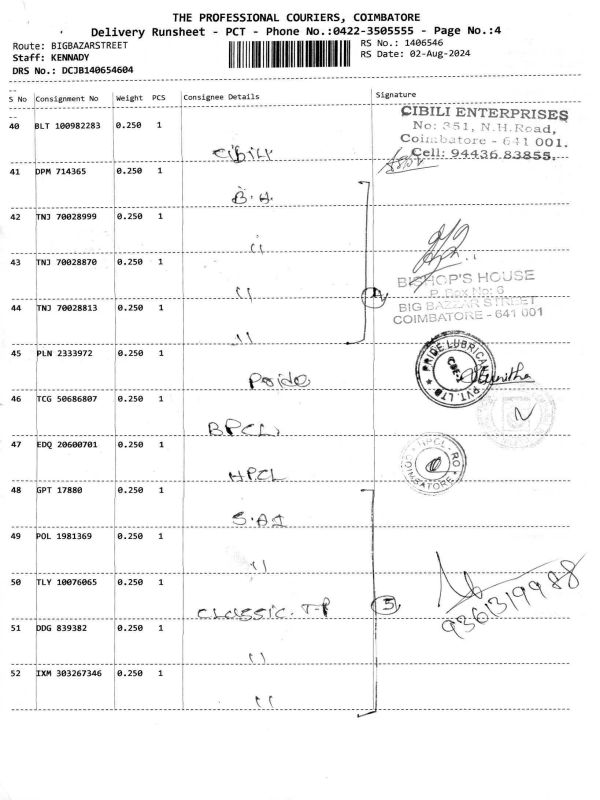 THE PROFESSIONAL COURIERS, COIMBATORE
Delivery Runsheet - PCT - Phone No.:0422-3505555 - Page No.:4
Route: BIGBAZARSTREET
Staff: KENNADY
DRS No.: DCJB140654604
RS No.: 1406546
RS Date: 02-Aug-2024
S No Consignment No Weight PCS Consignee Details Signature
40 BLT 100982283 0.250 1 CIBILI
CIBILI ENTERPRISES
No: 351, N.H.Road,
Coimbatore - 641 001.
Cell: 94436 83855.
41 DPM 714365 0.250 1 B.H.
42 TNJ 70028999 0.250 1 "
43 TNJ 70028870 0.250 1 "
44 TNJ 70028813 0.250 1 "
4
BISHOP'S HOUSE
P. Box No: 6
BIG BAZAAR STREET
COIMBATORE - 641 001
45 PLN 2333972 0.250 1 Pride
PRIDE LUBRICANTS PVT. LTD
CBE-1
46 TCG 50686807 0.250 1 BPCL
47 EDQ 20600701 0.250 1 HPCL
HPCL - RO
COIMBATORE
48 GPT 17880 0.250 1 S.A1
49 POL 1981369 0.250 1 "
50 TLY 10076065 0.250 1 CLASSIC. T-P
5
9361319988
51 DDG 839382 0.250 1 "
52 IXM 303267346 0.250 1 "